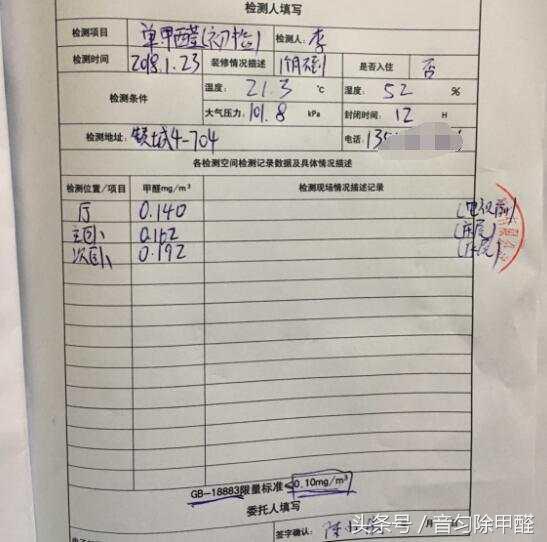 检测人填写
检测项目 单甲醛(初检) 检测人: 李
检测时间 2018.1.23 装修情况描述 1个月不到 是否入住 否
检测条件 温度: 21.3 ℃ 湿度: 52 %
大气压力: 101.8 kPa 封闭时间: 12 H
检测地址: 4-704 电话: 135
各检测空间检测记录数据及具体情况描述
检测位置/项目 甲醛mg/m³ 检测现场情况描述记录
厅 0.140 (电视前)
主卧 0.162 (床尾)
次卧 0.192 (床尾)
GB-18883限量标准≤0.10mg/m³
委托人填写
签字确认:
头条号/音匀除甲醛